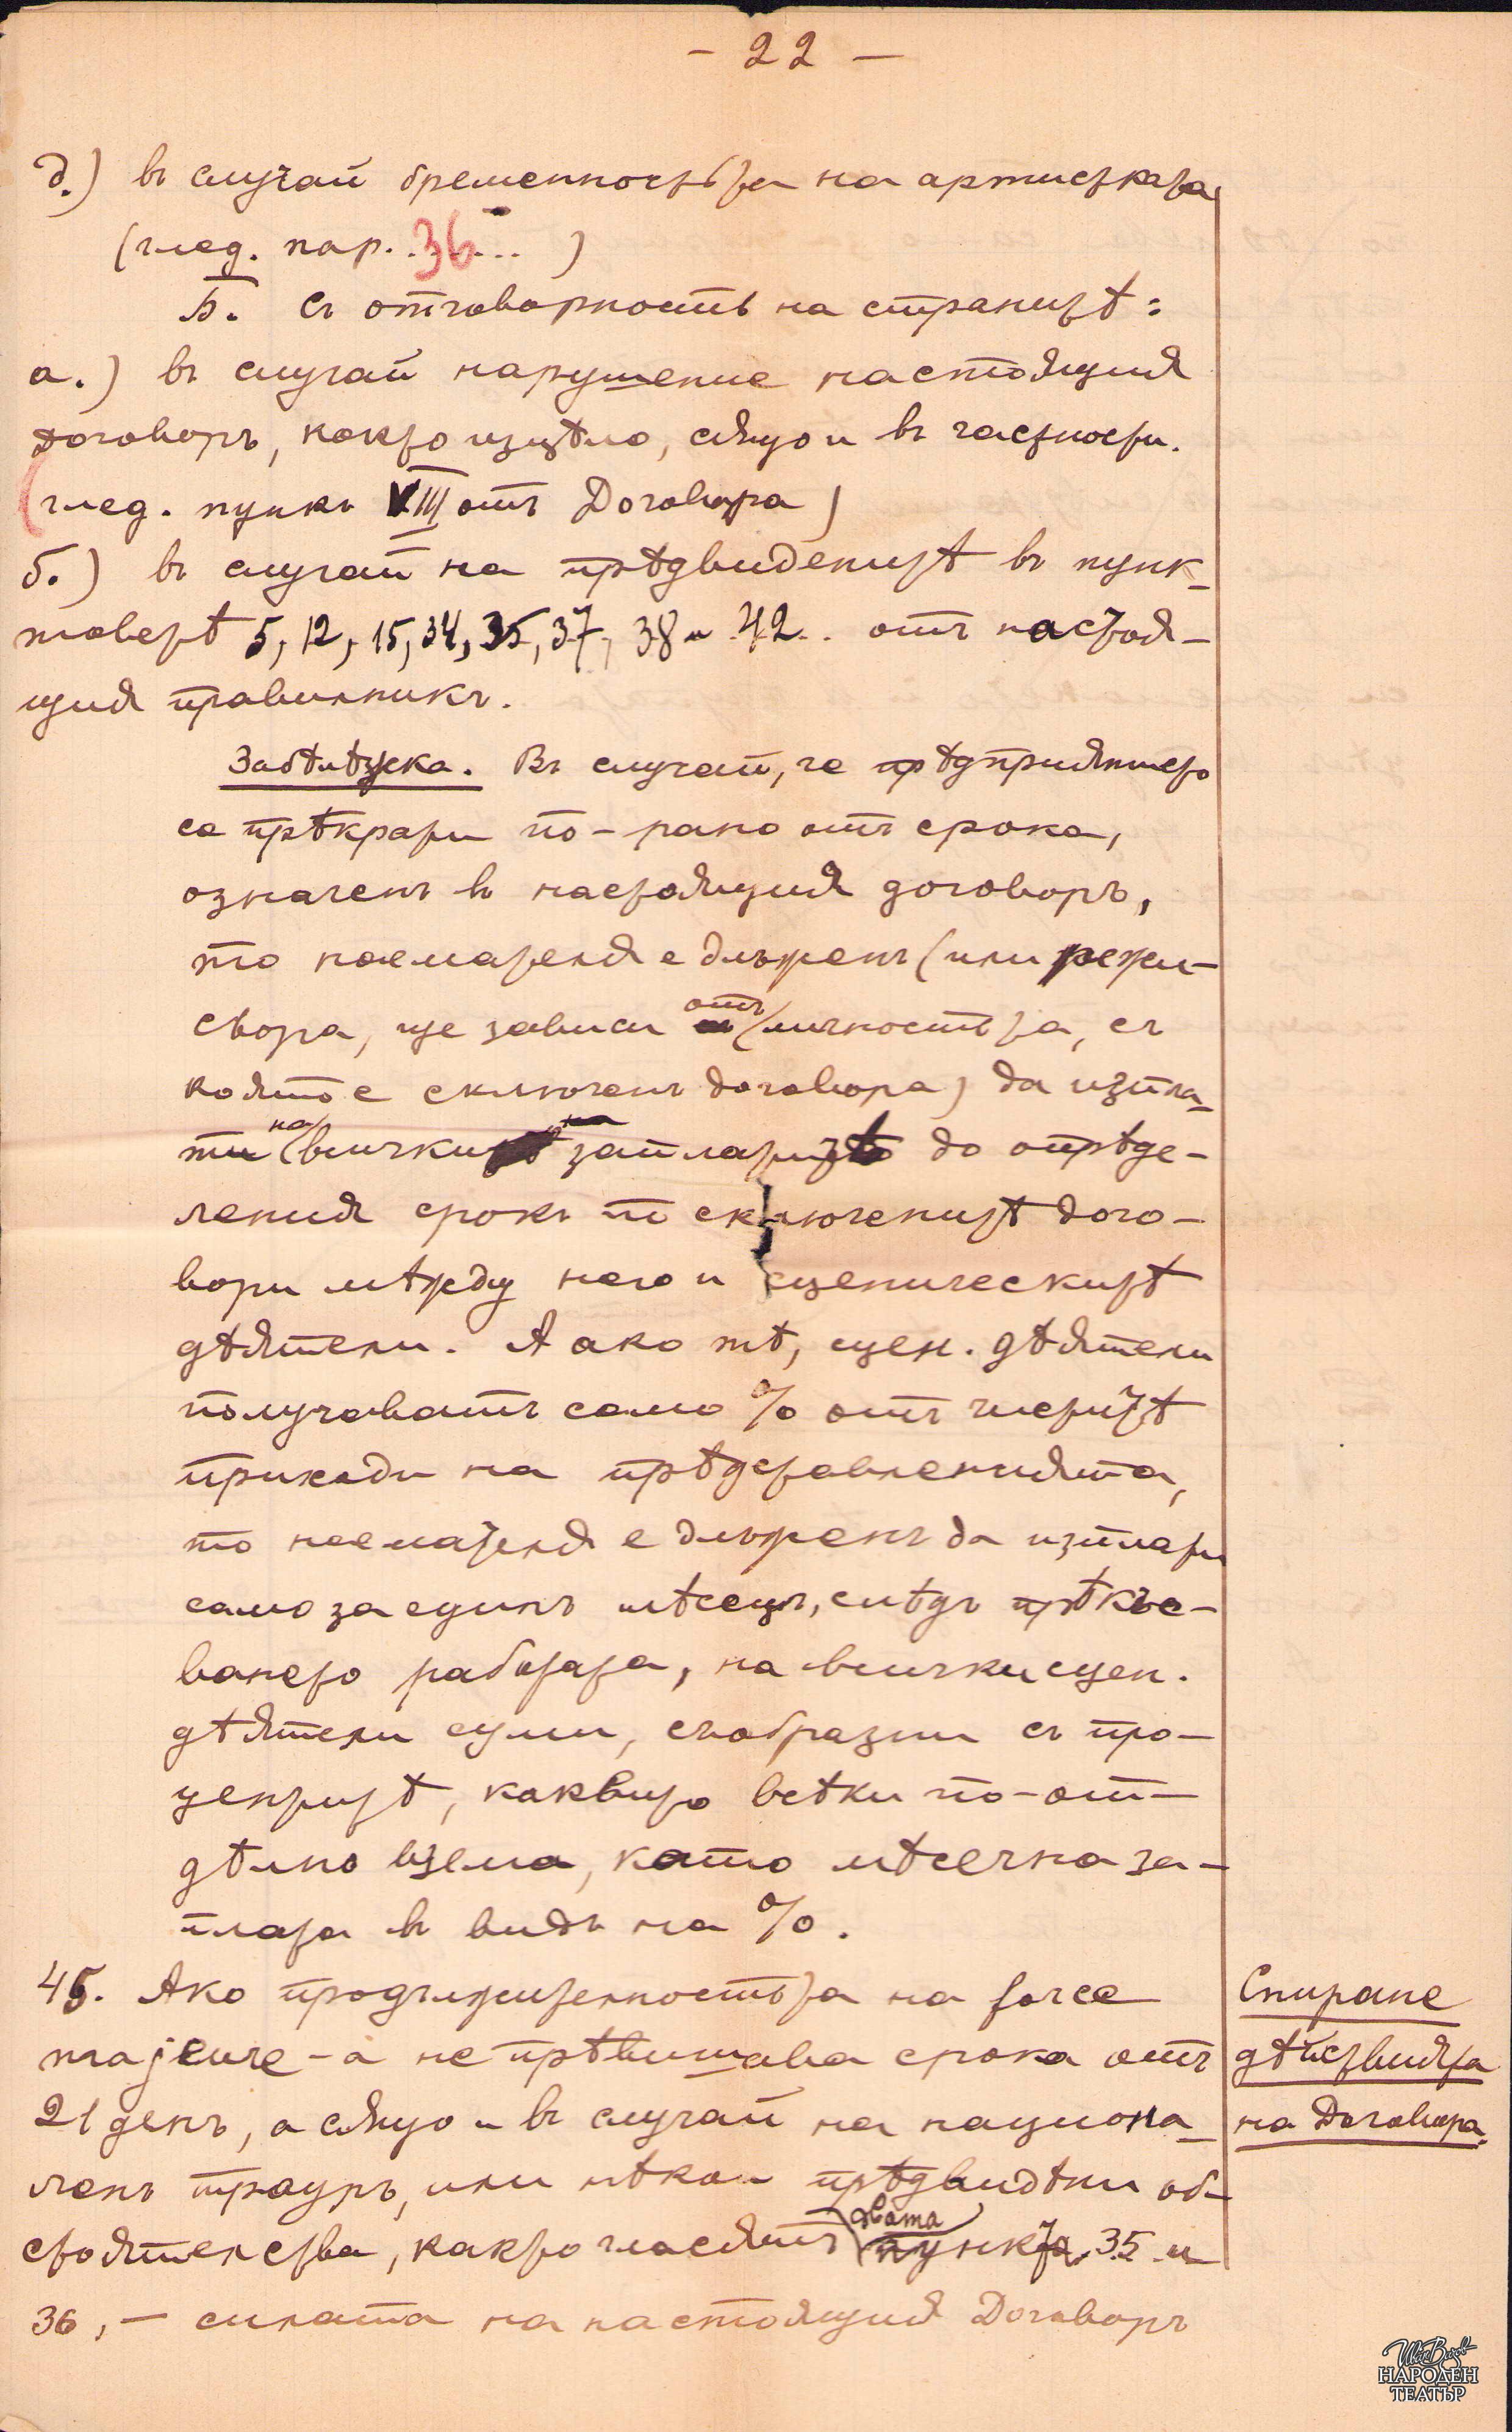 - 22 -
д.) въ случай бременностьта на артистката
(глед. пар. . 36 ... )
Б. Съ отговорность на странитѣ:
а.) въ случай нарушение настоящия
договоръ, както изцѣло, сѫщо и въ частности.
(глед. пунктъ VIII отъ Договора)
б.) въ случай на прѣдвиденитѣ въ пунк-
товетѣ 5, 12, 15, 34, 35, 37, 38 и 42.. отъ настоя-
щия правилникъ.
Забѣлѣжка. Въ случай, че прѣдприятието
се прѣкрати по-рано отъ срока,
означенъ въ настоящия договоръ,
то наемателя е длъженъ (или режи-
сьора, ще зависи отъ личностьта, съ
която е сключенъ договора) да изпла-
ти на всички заплатитѣ до опрѣде-
ления срокъ по сключенитѣ дого-
вори мѣжду него и сценическитѣ
дѣятели. А ако тѣ, сцен. дѣятели
получаватъ само % отъ чиститѣ
приходи на прѣдставленията,
то наемателя е длъженъ да изплати
само за единъ мѣсецъ, слѣдъ прѣкъс-
ването работата, на всички сцен.
дѣятели суми, съобразни съ про-
центитѣ, каквито всѣки по-от-
дѣлно взема, като мѣсечна за-
плата въ видъ на %.
45. Ако продължителностьта на force
majeure-а не прѣвишава срока отъ
21 день, а сѫщо и въ случай на национа-
ленъ трауръ, или нѣкои прѣдвидѣни об-
стоятелства, както гласятъ §-фата пункта 35 и
36, - силата на настоящия Договоръ
Спиране
дѣйствията
на Договора.
Иван Вазов
НАРОДЕН
ТЕАТЪР